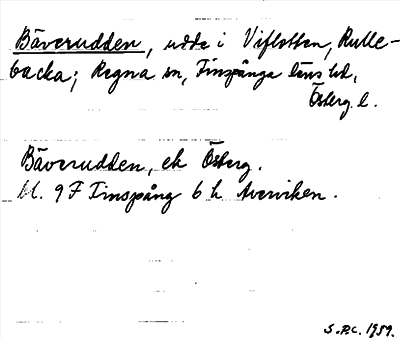 Bäverudden, udde i Viflotten, Rulle-
backa; Regna sn, Finspånga läns hd,
Österg. l.
Bäverudden, ek Österg.
bl. 9 F Finspång 6 h Averviken.
S.P.C. 1959.